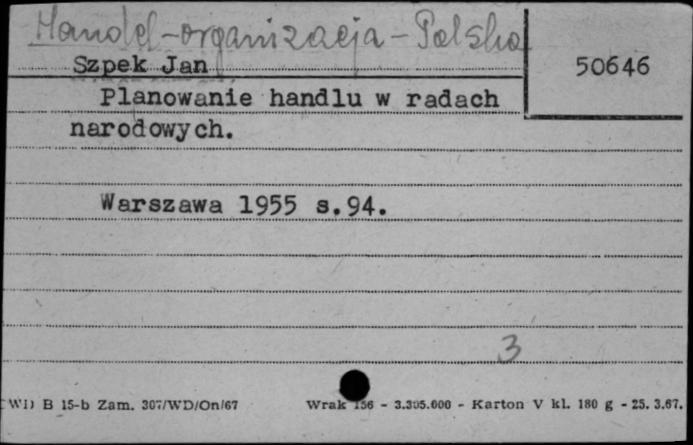 Handel-organizacja-Polska
Szpek Jan
50646
Planowanie handlu w radach
narodowych.
Warszawa 1955 s.94.
3
WD B 15-b Zam. 307/WD/On/67
Wrak 156 - 3.305.000 - Karton V kl. 180 g - 25. 3.67.